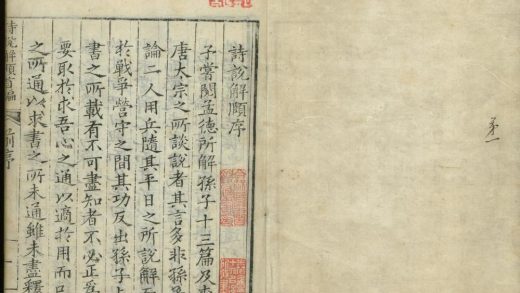 第一
詩說解頤序
子嘗閱孟德所解孫子十三篇乃李
唐太宗之所談說者其言多非孫
論二人用兵隨其平日之所說解而
於戰爭營守之間其功反出孫子上
書之所載有不可盡知者不必正為
要取於求吾心之通以適於用而
之所通以求書之所未通雖未盡釋
詩說解頤 前序